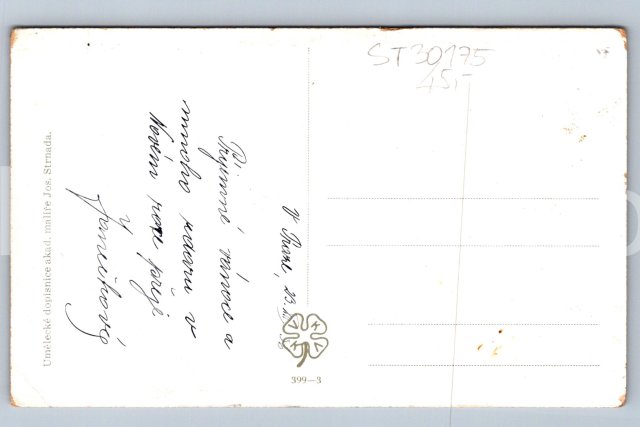 ST30175
45,-
V Praze, 23.
Příjemné vánoce a
mnoho zdaru v
Novém roce přejí
Umělecké dopisnice akad. malíře Jos. Strnada.
V K V
399—3